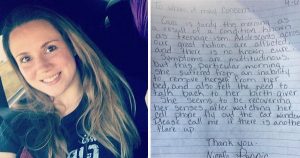 To whom it may Concern:
Cara is tardy this morning as
a result of a condition known
as teenage-ism. Adolescents across
our great nation are affected
and there is no known cure.
Symptoms are multitudinous
but this particular morning
she suffered from an inability
to remove herself from her
bed, and also felt the need to
talk back to her birth-giver
She seems to be recovering
her senses, after watching her
cell phone fly out the car window.
Please call me if there is another
flare up
Thank you-
Nicole Poppic